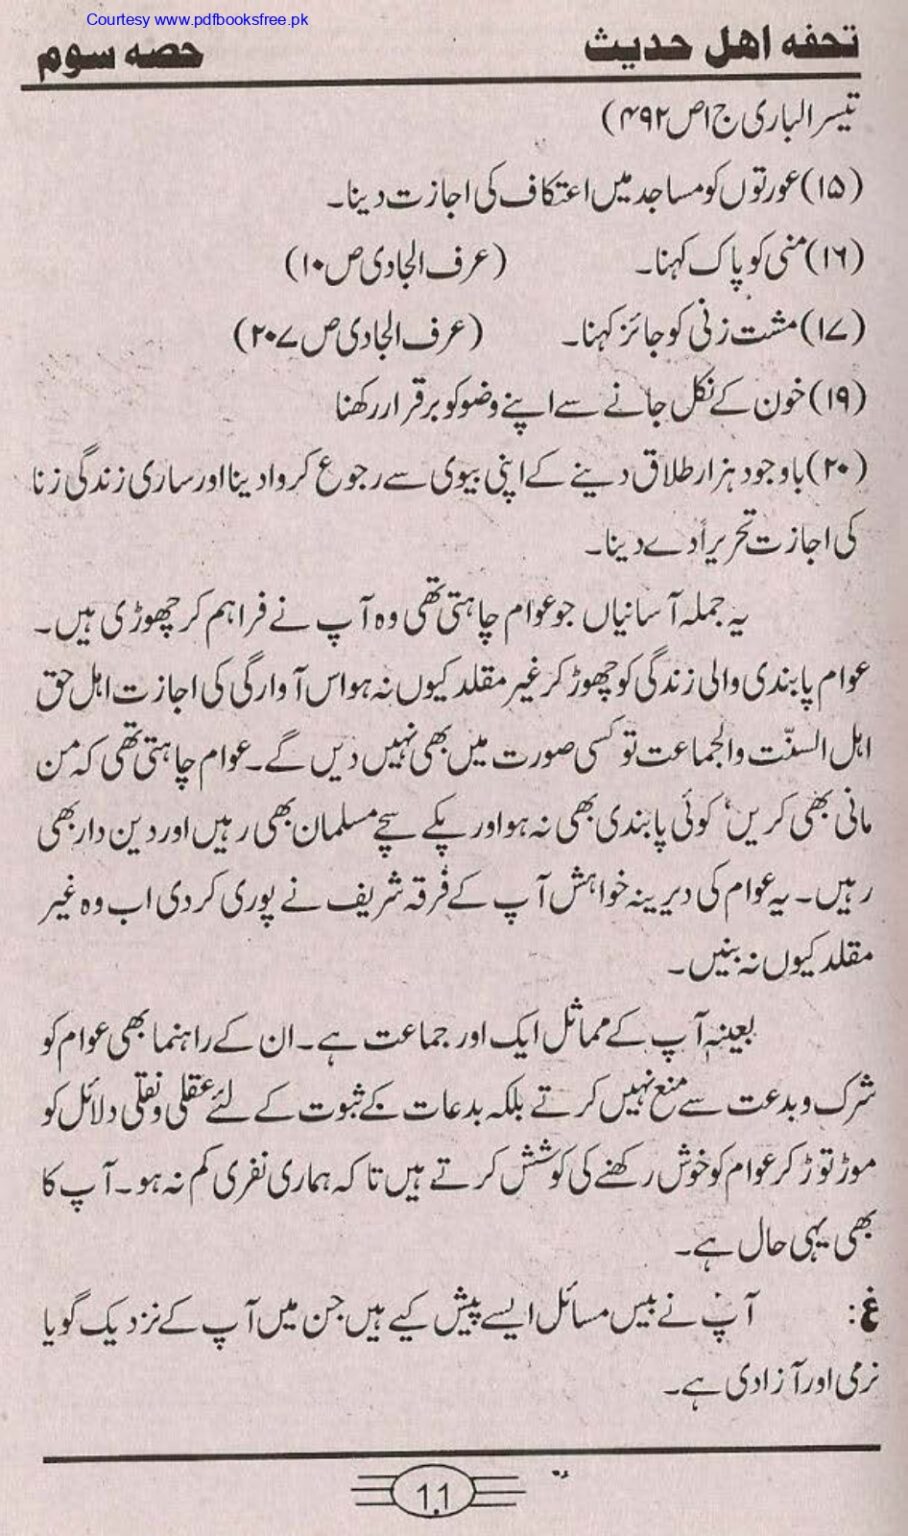 Courtesy www.pdfbooksfree.pk
تحفه اهل حديث حصه سوم
تیسر الباری ج۱ص۴۹۲)
(۱۵)عورتوں کو مساجد میں اعتکاف کی اجازت دینا۔
(۱۶)منی کو پاک کہنا۔ (عرف الجادی ص۱۰)
(۱۷)مشت زنی کو جائز کہنا۔ (عرف الجادی ص۲۰۷)
(۱۹)خون کے نکل جانے سے اپنے وضو کو برقرار رکھنا
(۲۰)باوجود ہزار طلاق دینے کے اپنی بیوی سے رجوع کروا دینا اور ساری زندگی زنا
کی اجازت تحریراً دے دینا۔
یہ جملہ آسانیاں جو عوام چاہتی تھی وہ آپ نے فراہم کر چھوڑی ہیں۔
عوام پابندی والی زندگی کو چھوڑ کر غیر مقلد کیوں نہ ہو اس آوارگی کی اجازت اهل حق
اهل السنّت والجماعت تو کسی صورت میں بھی نہیں دیں گے۔ عوام چاہتی تھی کہ من
مانی بھی کریں، کوئی پابندی بھی نہ ہو اور پکے سچے مسلمان بھی رہیں اور دین دار بھی
رہیں۔ یہ عوام کی دیرینہ خواہش آپ کے فرقہ شریف نے پوری کر دی اب وہ غیر
مقلد کیوں نہ بنیں۔
بعینہٖ آپ کے مماثل ایک اور جماعت ہے۔ ان کے راہنما بھی عوام کو
شرک و بدعت سے منع نہیں کرتے بلکہ بدعات کے ثبوت کے لئے عقلی و نقلی دلائل کو
موڑ توڑ کر عوام کو خوش رکھنے کی کوشش کرتے ہیں تا کہ ہماری نفری کم نہ ہو۔ آپ کا
بھی یہی حال ہے۔
غ: آپ نے بیس مسائل ایسے پیش کیے ہیں جن میں آپ کے نزدیک گویا
نرمی اور آزادی ہے۔
11